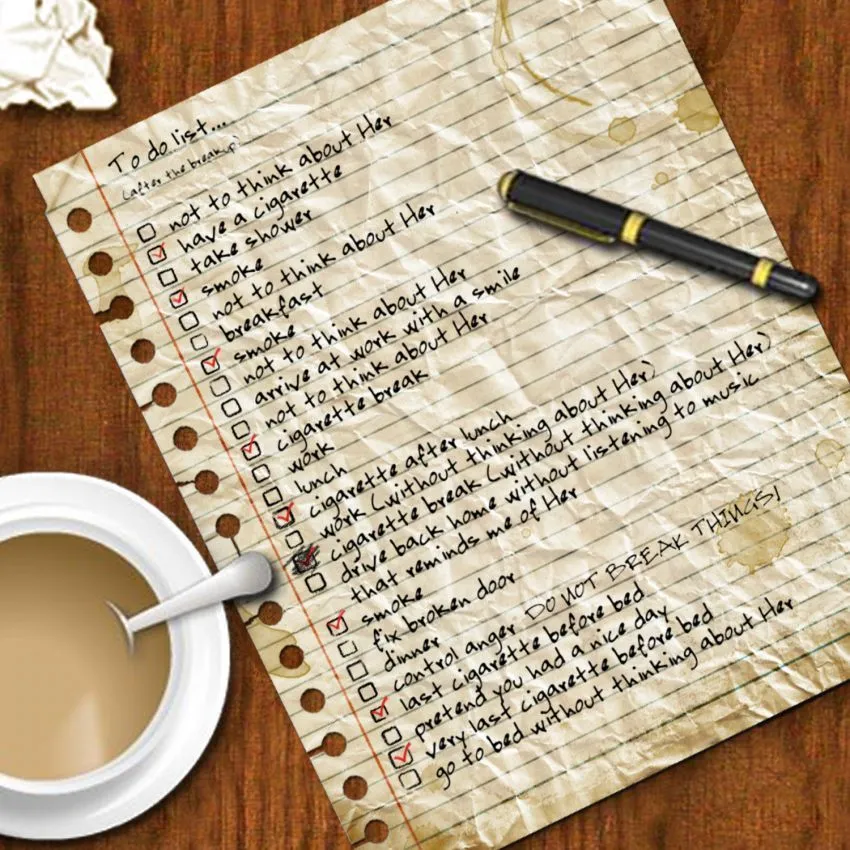 To do list...
(after the breakup)
not to think about Her
have a cigarette
take shower
smoke
not to think about Her
breakfast
smoke
not to think about Her
arrive at work with a smile
not to think about Her
cigarette break
work
lunch
cigarette after lunch
work (without thinking about Her)
cigarette break (without thinking about Her)
drive back home without listening to music
that reminds me of Her
smoke
fix broken door
dinner
control anger DO NOT BREAK THINGS!
last cigarette before bed
pretend you had a nice day
very last cigarette before bed
go to bed without thinking about Her